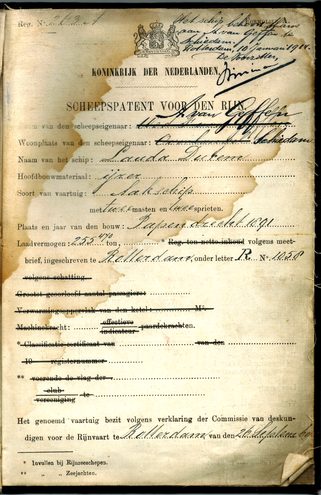 Reg. Nº
Het schip behoort thans
aan A. van Goffen te
Schiedam
Rotterdam, 10 Januari 1914.
KONINKRIJK DER NEDERLANDEN.
SCHEEPSPATENT VOOR DEN RIJN.
Naam van den scheepseigenaar: A. van Goffen
Woonplaats van den scheepseigenaar: Schiedam
Naam van het schip:
Hoofdbouwmateriaal: ijzer
Soort van vaartuig: Aakschip
met twee masten en sprieten.
Plaats en jaar van den bouw: Papendrecht 1891
Landvermogen: 255 ton, * Reg. ton netto inhoud volgens meet-
brief, ingeschreven te Rotterdam, onder letter R Nº 1058
volgens schatting.
Grootst geoorloofd aantal passagiers:
Verwarmingsoppervlak van den ketel: M²
Machinekracht: effectieve indicateur paardekrachten.
* Classificatie-certificaat van van den
19 registernummer
** voerende de vlag der
club
vereeniging
Het genoemd vaartuig bezit volgens verklaring der Commissie van deskun-
digen voor de Rijnvaart te Rotterdam van den 26 September
* Invullen bij Rijnzeeschepen.
** „ „ Zeejachten.